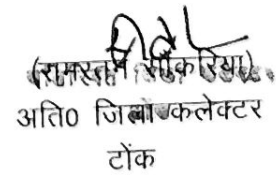 (रामरतन सौंकरिया)
अति0 जिला कलेक्टर
टोंक